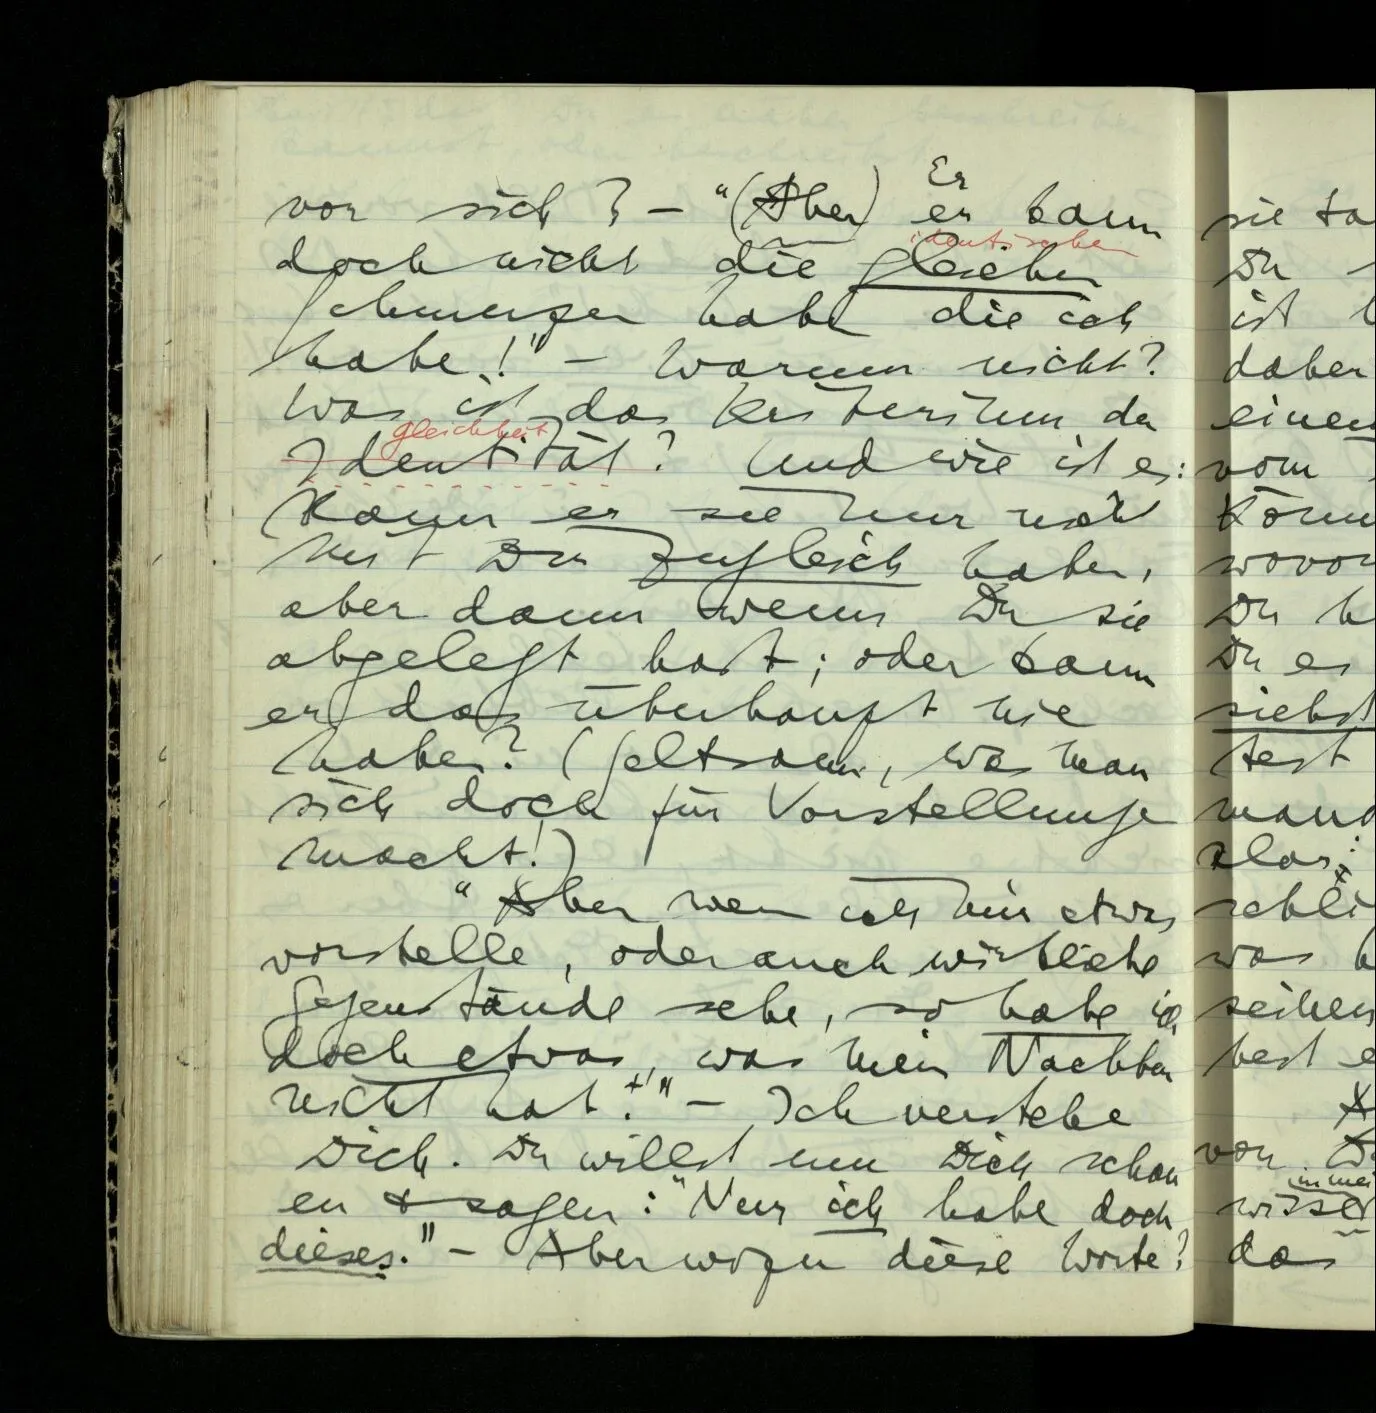 vor sich? – "(Aber) er kann
Er
doch nicht die gleichen
identischen
Schmerzen haben die ich
habe!" – Warum nicht?
Was ist das Kriterium der
gleichheit
Identität? Und wie ist es:
Kann er sie nur nicht
mit Dir zugleich haben,
aber dann wenn Du sie
abgelegt hast; oder kann
er das überhaupt nie
haben? (Seltsam, was man
sich doch für Vorstellunge
macht!)
"Aber wenn ich mir etwas
vorstelle, oder auch wirkliche
Gegenstände sehe, so habe ich
doch etwas, was mein Nachbar
nicht hat." – Ich verstehe
Dich. Du willst um Dich schau
en & sagen: "Nur ich habe doch
dieses." – Aber wozu diese Worte?
sie
Du
ist
daher
einem
vom
wovon
Du
Du es
siehst
test
was
seinen
best
von
das